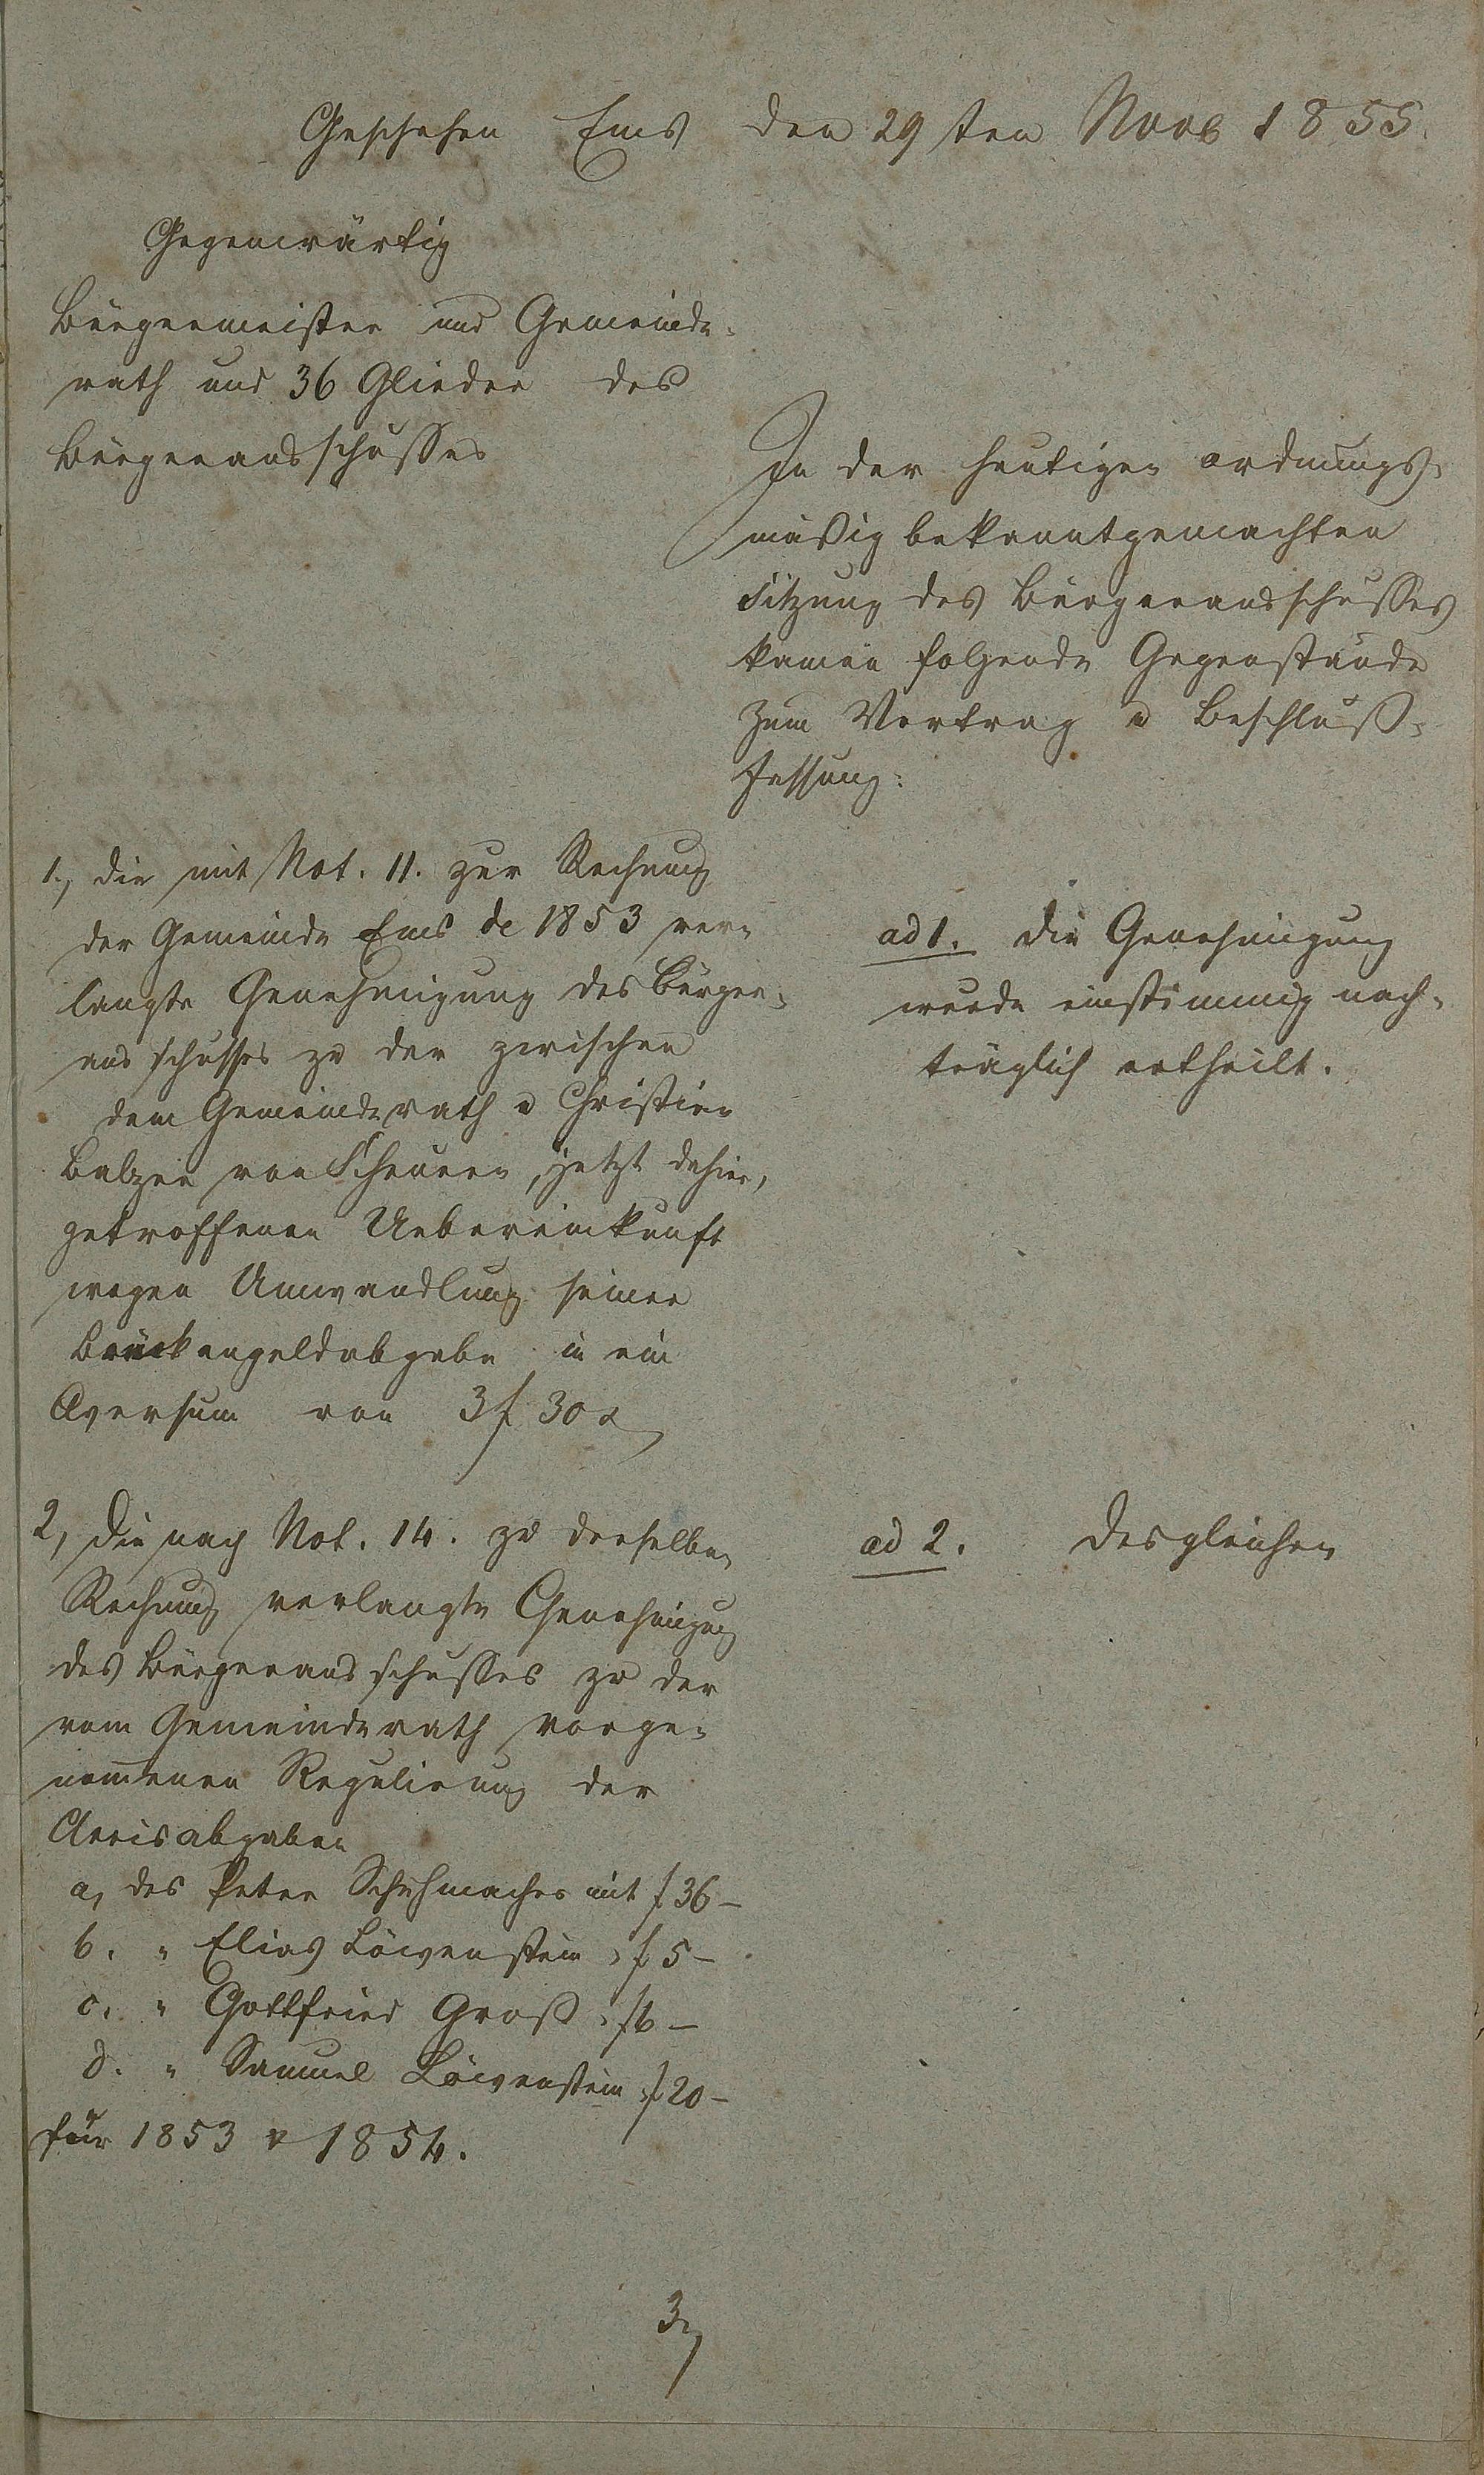 Geschehen Ems den 29ten Novb 1855.
Gegenwärtig
Bürgermeister und Gemeinde-
rath und 36 Glieder des
Bürgerausschusses
In der heutigen ordnungs-
mäßig bekanntgemachten
Sitzung des Bürgerausschusses
kamen folgende Gegenstände
zum Vortrag u Beschluß-
fassung:
1., die mit Not. 11. zur Rechnung
der Gemeinde Ems de 1853 ver-
langte Genehmigung des Bürger-
ausschusses zu der zwischen
dem Gemeinderath u Christian
Balzer von Scheuern, jetzt dahier,
getroffenen Uebereinkunft
wegen Umwandlung seiner
Brückengeldabgabe in ein
Aversum von 3 f 30 x
ad 1. Die Genehmigung
wurde einstimmig nach-
träglich ertheilt.
2, Die nach Not. 14. zu derselben
Rechnung verlangte Genehmigung
des Bürgerausschusses zu der
vom Gemeinderath vorge-
nom̄enen Regulirung der
Accisabgaben
a, des Peter Schuhmacher mit f 36 —
b. " Elias Löwenstein " f 5 —
c. " Gottfried Groß " f 6 —
d. " Samuel Löwenstein " f 20 —
für 1853 & 1854.
ad 2. Desgleichen
3,